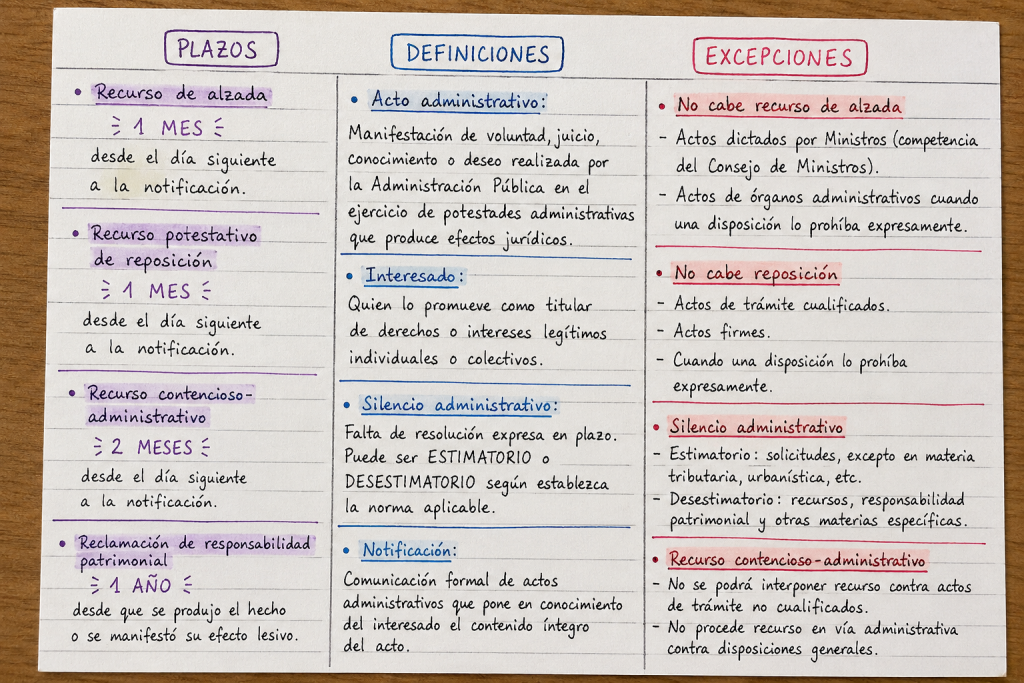 PLAZOS
• Recurso de alzada
1 MES
desde el día siguiente
a la notificación.
• Recurso potestativo
de reposición
1 MES
desde el día siguiente
a la notificación.
• Recurso contencioso-
administrativo
2 MESES
desde el día siguiente
a la notificación.
• Reclamación de responsabilidad
patrimonial
1 AÑO
desde que se produjo el hecho
o se manifestó su efecto lesivo.
DEFINICIONES
• Acto administrativo:
Manifestación de voluntad, juicio,
conocimiento o deseo realizada por
la Administración Pública en el
ejercicio de potestades administrativas
que produce efectos jurídicos.
• Interesado:
Quien lo promueve como titular
de derechos o intereses legítimos
individuales o colectivos.
• Silencio administrativo:
Falta de resolución expresa en plazo.
Puede ser ESTIMATORIO o
DESESTIMATORIO según establezca
la norma aplicable.
• Notificación:
Comunicación formal de actos
administrativos que pone en conocimiento
del interesado el contenido íntegro
del acto.
EXCEPCIONES
• No cabe recurso de alzada
- Actos dictados por Ministros (competencia
del Consejo de Ministros).
- Actos de órganos administrativos cuando
una disposición lo prohíba expresamente.
• No cabe reposición
- Actos de trámite cualificados.
- Actos firmes.
- Cuando una disposición lo prohíba
expresamente.
• Silencio administrativo
- Estimatorio: solicitudes, excepto en materia
tributaria, urbanística, etc.
- Desestimatorio: recursos, responsabilidad
patrimonial y otras materias específicas.
• Recurso contencioso-administrativo
- No se podrá interponer recurso contra actos
de trámite no cualificados.
- No procede recurso en vía administrativa
contra disposiciones generales.